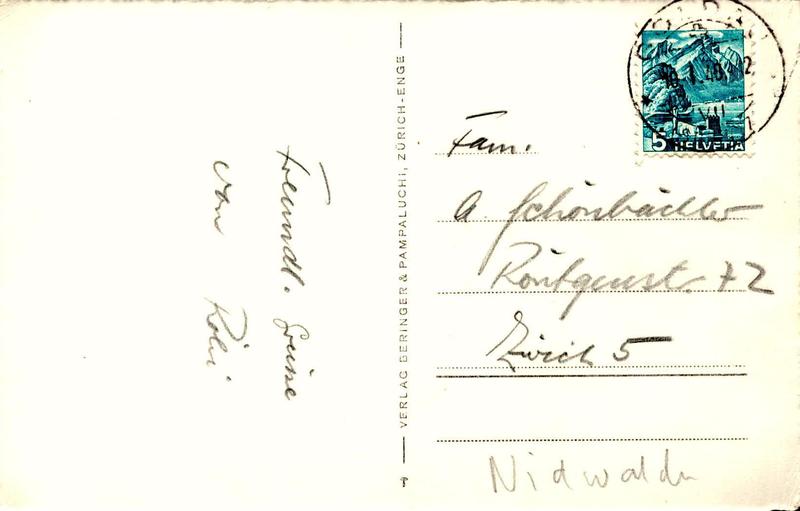 Freundl. Grüsse
von Röbi
VERLAG BERINGER & PAMPALUCHI, ZÜRICH-ENGE
5 HELVETIA
Fam.
A. Schönbächler
Röntgenstr. 72
Zürich 5
Nidwalden